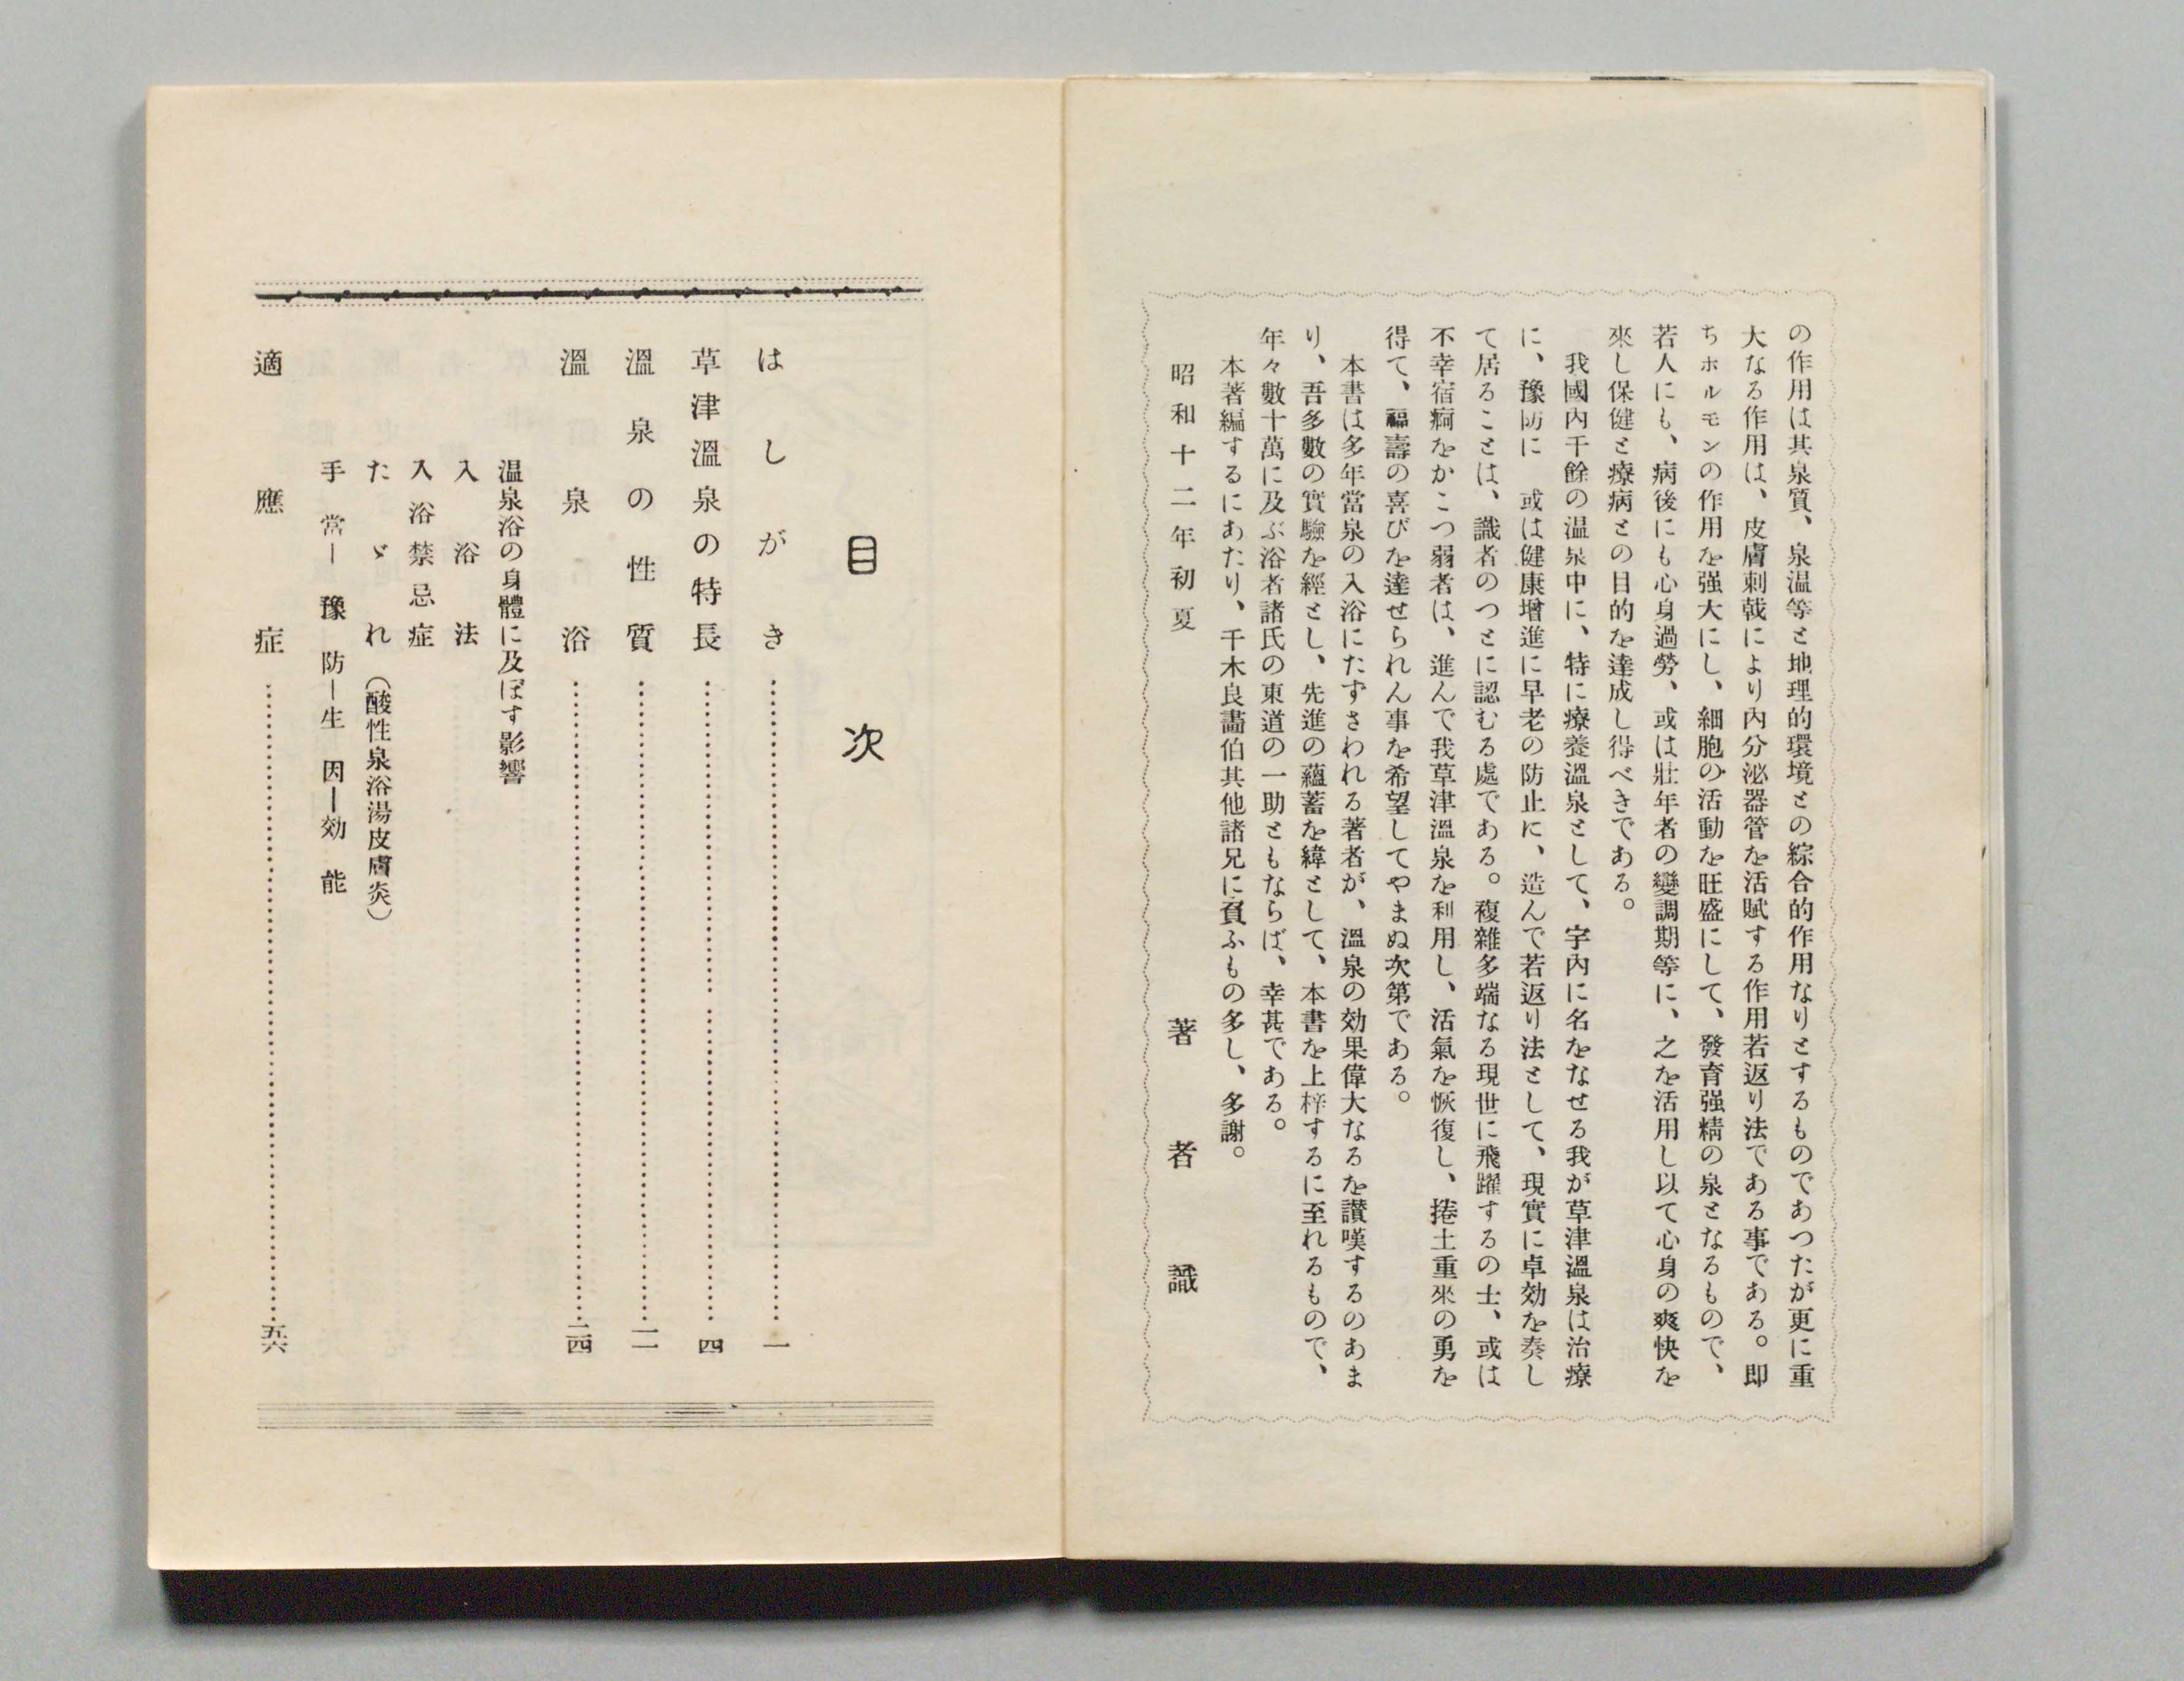 の作用は其泉質、泉温等と地理的環境との綜合的作用なりとするものであつたが更に重
大なる作用は、皮膚刺戟により内分泌器管を活賦する作用若返り法である事である。即
ちホルモンの作用を强大にし、細胞の活動を旺盛にして、發育强精の泉となるもので、
若人にも、病後にも心身過勞、或は壯年者の變調期等に、之を活用し以て心身の爽快を
來し保健と療病との目的を達成し得べきである。
我國内千餘の温泉中に、特に療養溫泉として、宇内に名をなせる我が草津溫泉は治療
に、豫防に　或は健康增進に早老の防止に、造んで若返り法として、現實に卓効を奏し
て居ることは、識者のつとに認むる處である。複雜多端なる現世に飛躍するの士、或は
不幸宿痾をかこつ弱者は、進んで我草津溫泉を利用し、活氣を恢復し、捲土重來の勇を
得て、福壽の喜びを達せられん事を希望してやまぬ次第である。
本書は多年當泉の入浴にたずさわれる著者が、溫泉の効果偉大なるを讃嘆するのあま
り、吾多數の實驗を經とし、先進の蘊蓄を緯として、本書を上梓するに至れるもので、
年々數十萬に及ぶ浴者諸氏の東道の一助ともならば、幸甚である。
本著編するにあたり、千木良畵伯其他諸兄に負ふもの多し、多謝。
昭和十二年初夏
著者識
目次
はしがき……一
草津溫泉の特長……四
溫泉の性質……一一
溫泉浴……二四
温泉浴の身體に及ぼす影響
入浴法
入浴禁忌症
たゞれ（酸性泉浴湯皮膚炎）
手當―豫防―生因―効能
適應症……五六